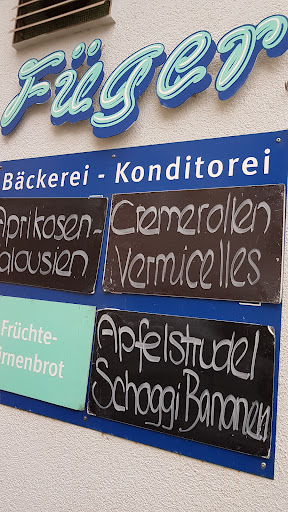 Füger
Bäckerei - Konditorei
Aprikosen-
alousien
Cremerollen
Vermicelles
Früchte-
irnenbrot
Apfelstrudel
Schoggi Bananen